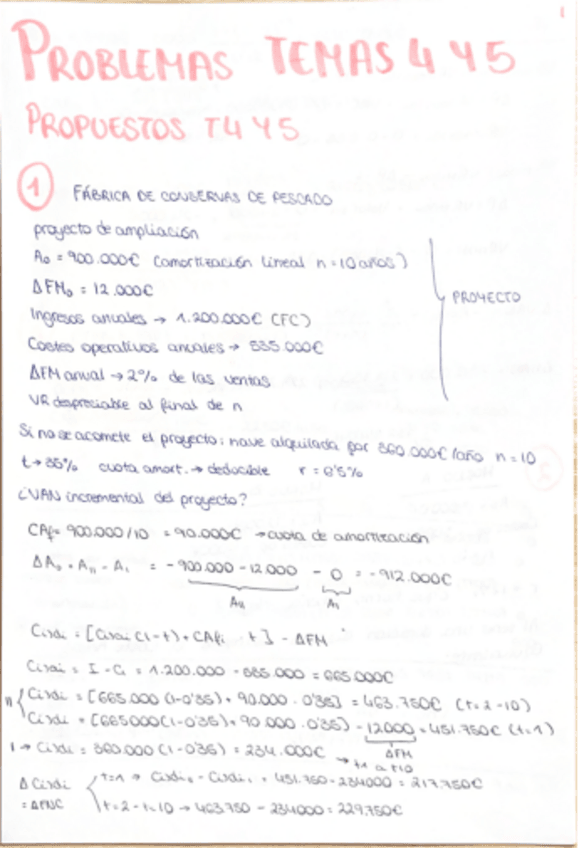 1
PROBLEMAS TEMAS 4 Y 5
PROPUESTOS T4 Y 5
1 FÁBRICA DE CONSERVAS DE PESCADO
proyecto de ampliación
A₀ = 900.000€ (amortización lineal n=10 años)
ΔFM₀ = 12.000€
PROYECTO
Ingresos anuales → 1.200.000€ (FC)
Costes operativos anuales → 535.000€
ΔFM anual → 2% de las ventas
VR despreciable al final de n
Si no se acomete el proyecto: nave alquilada por 360.000€/año n=10
t → 35% cuota amort. → deducible r = 6'5%
¿VAN incremental del proyecto?
CAf = 900.000/10 = 90.000€ → cuota de amortización
ΔA₀ = A₁₁ - A₁ = -900.000 - 12.000 - 0 = -912.000€
A₁₁ A₁
= [ (1-t) + CAf · t] - ΔFM
= I - C = 1.200.000 - 535.000 = 665.000€
= [665.000 (1-0'35) + 90.000 · 0'35] = 463.750€ (t=2-10)
= [665.000(1-0'35) + 90.000 · 0'35] - 12.000 = 451.750€ (t=1)
ΔFM
= 360.000 (1-0'35) = 234.000€ → t1 a t10
t=1 → 451.750 - 234000 = 217.750€
t=2 - t=10 → 463.750 - 234000 = 229.750€
= ΔFNC